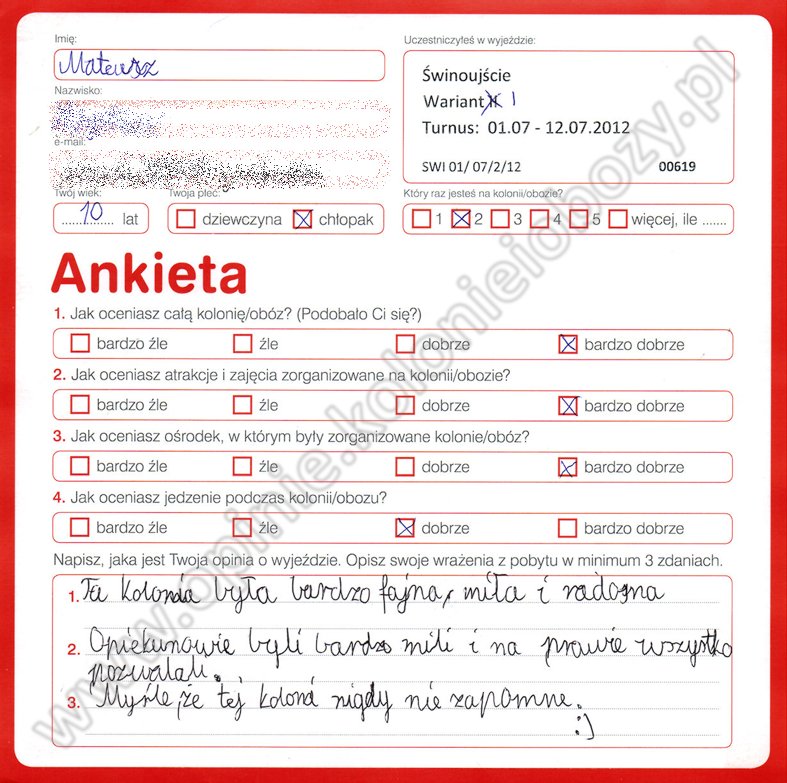 Imię:
Mateusz
Nazwisko:
e-mail:
Twój wiek:
10 lat
Twoja płeć:
dziewczyna chłopak
Uczestniczyłeś w wyjeździe:
Świnoujście
Wariant II I
Turnus: 01.07 - 12.07.2012
SWI 01/ 07/2/12 00619
Który raz jesteś na kolonii/obozie?
1 2 3 4 5 więcej, ile .......
Ankieta
1. Jak oceniasz całą kolonię/obóz? (Podobało Ci się?)
bardzo źle źle dobrze bardzo dobrze
2. Jak oceniasz atrakcje i zajęcia zorganizowane na kolonii/obozie?
bardzo źle źle dobrze bardzo dobrze
3. Jak oceniasz ośrodek, w którym były zorganizowane kolonie/obóz?
bardzo źle źle dobrze bardzo dobrze
4. Jak oceniasz jedzenie podczas kolonii/obozu?
bardzo źle źle dobrze bardzo dobrze
Napisz, jaka jest Twoja opinia o wyjeździe. Opisz swoje wrażenia z pobytu w minimum 3 zdaniach.
1. Ta kolonia była bardzo fajna, miła i radosna
2. Opiekunowie byli bardzo mili i na prawie wszystko
pozwalali.
3. Myśle, że tej koloni nigdy nie zapomne.
:)
www.opinie.kolonieiobozy.pl